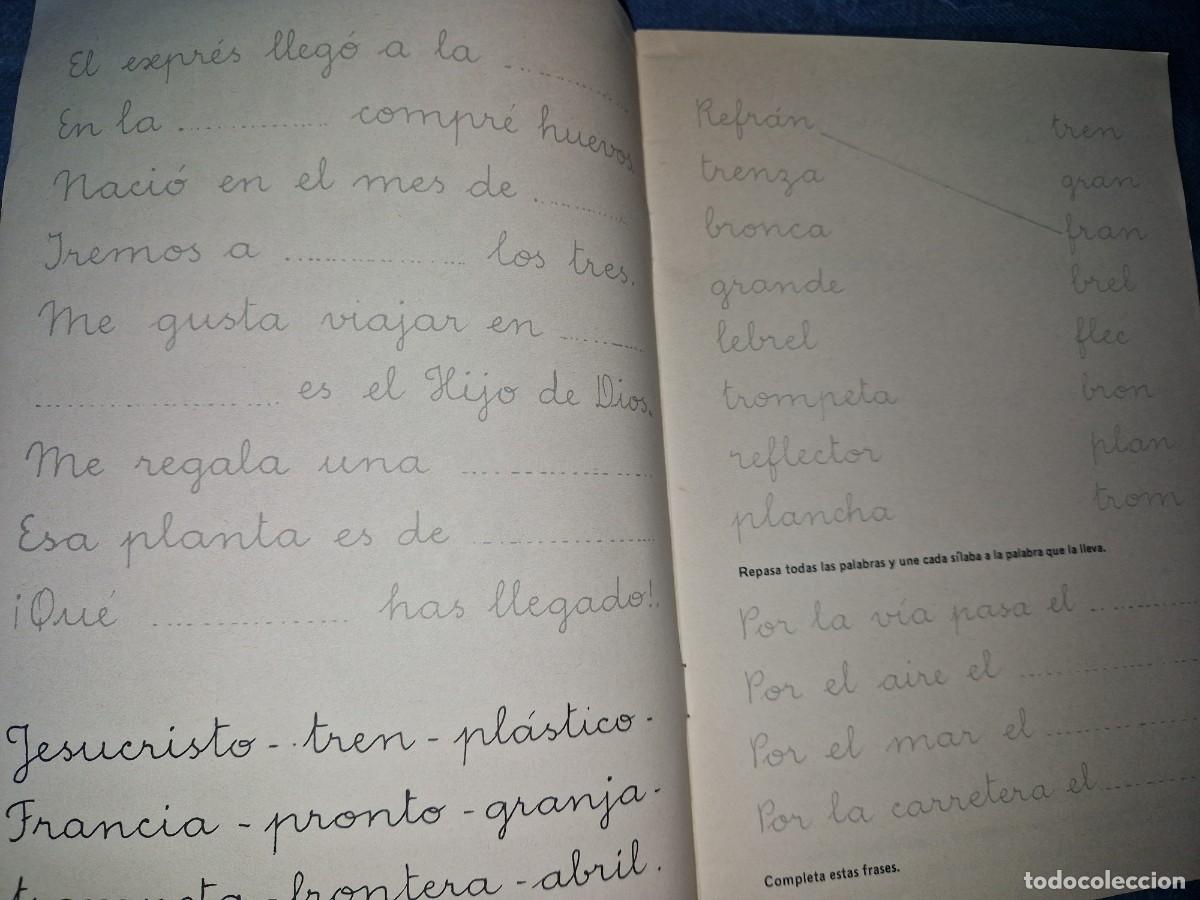 El exprés llegó a la ..........
En la .......... compré huevos.
Nació en el mes de ..........
Iremos a .......... los tres.
Me gusta viajar en ..........
.......... es el Hijo de Dios.
Me regala una ..........
Esa planta es de ..........
¡Qué .......... has llegado!.
Jesucristo - tren - plástico -
Francia - pronto - granja -
trompeta - frontera - abril.
Refrán tren
trenza gran
bronca fran
grande brel
lebrel flec
trompeta bron
reflector plan
plancha trom
Repasa todas las palabras y une cada sílaba a la palabra que la lleva.
Por la vía pasa el ..........
Por el aire el ..........
Por el mar el ..........
Por la carretera el ..........
Completa estas frases.
todocoleccion